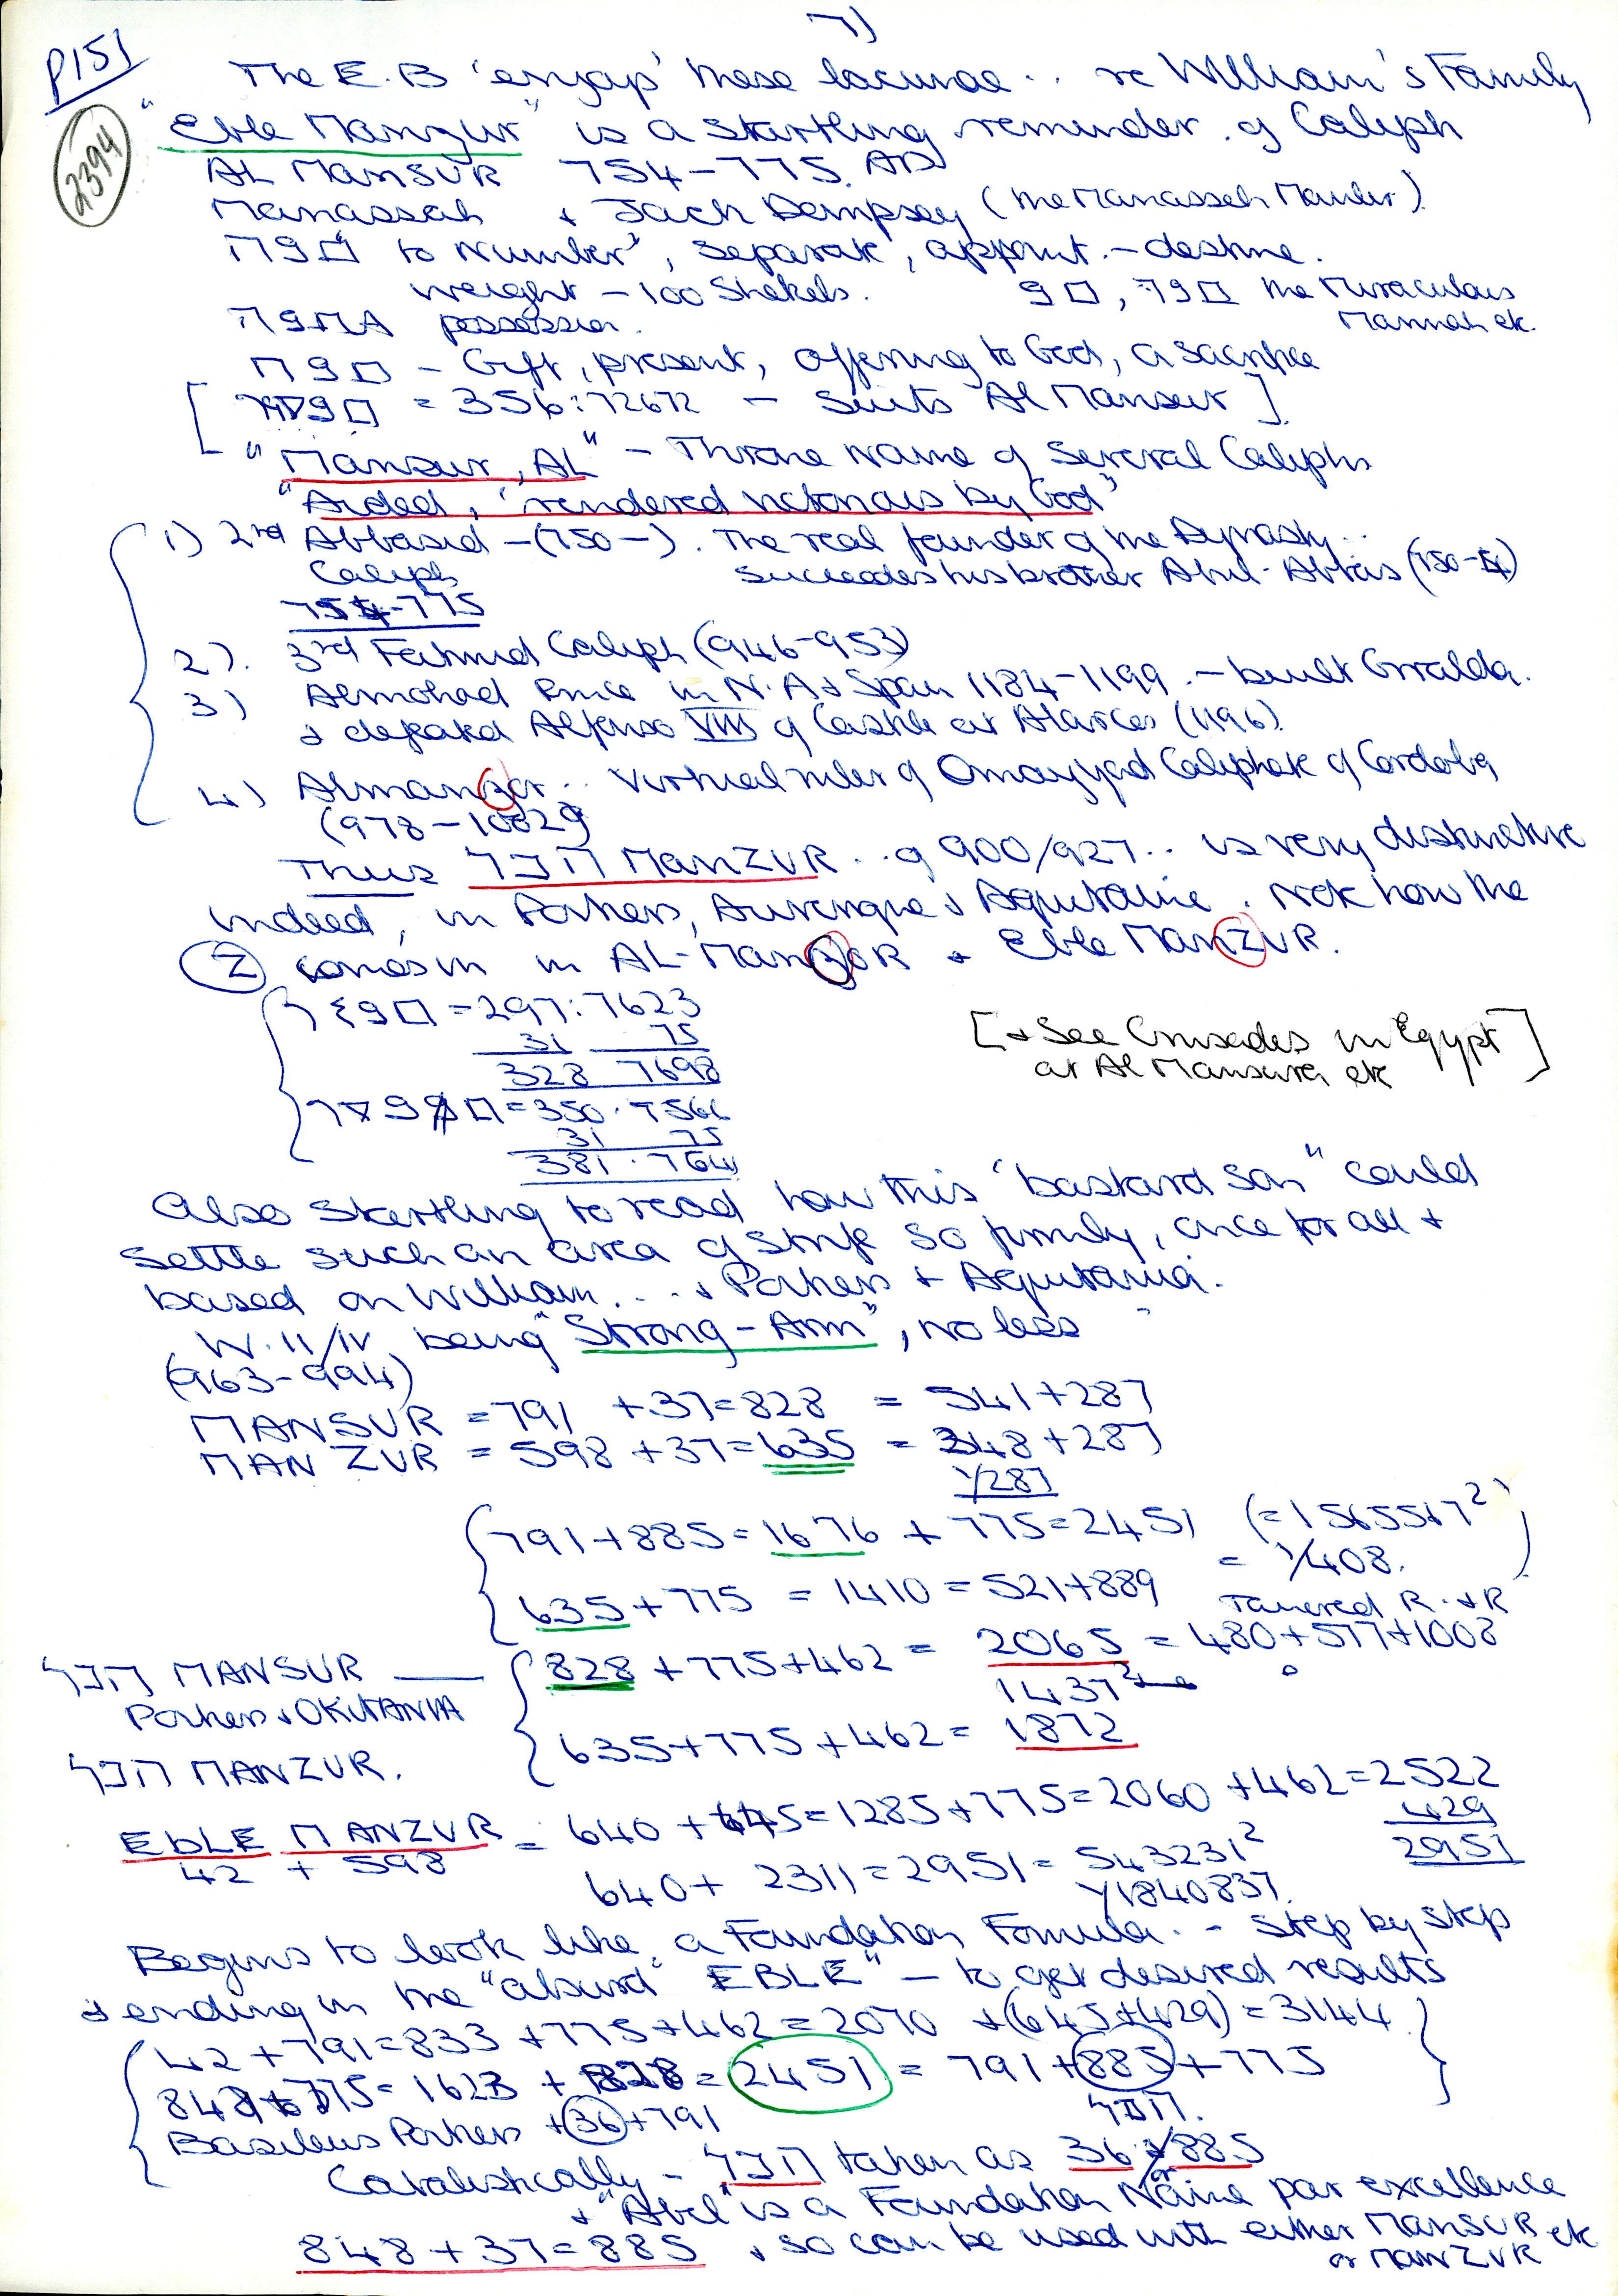 7)
P151
2394
The E.B 'enjap' these lacunae .. re William's Family
"Eble Manzur" is a startling reminder of Caliph
AL MANSUR 754-775. AD
Manassah + Jack Dempsey (the Manasseh Mauler).
to 'Number', separate, appoint. - destine.
weight - 100 Shekels. the Miraculous
Mannah etc.
possession.
- Gift, present, offering to God, a sacrifice
[ = 356:72672 - Suits Al Mansur ]
"Mansur, AL" - Throne Name of Several Caliphs
"Aided, 'rendered victorious by God"
1) 2nd Abbasid - (750-). The real founder of the Dynasty..
Caliph succeeds his brother Abul-Abbas (750-54)
754-775
2). 3rd Fatimid Caliph (946-953)
3) Almohad Prince in N.A & Spain 1184-1199. - built Giralda.
& defeated Alfonso VIII of Castile at Alarcos (1196).
4) Almanzor.. Virtual ruler of Omayyad Caliphate of Cordoba
(978-1002)
Thus MANZUR .. of 900/927.. is very distinctive
indeed, in Poitiers, Auvergne & Aquitaine. Note how the
Z comes in in AL-ManZOR & Eble ManZUR.
= 297:7623
31 75
328 7698
[& See Crusades in Egypt
at Al Mansura etc]
= 350.7566
31 75
381.7641
Also startling to read how this "bastard son" could
settle such an area of strife so firmly, once for all &
based on William.... & Poitiers & Aquitania.
W. II/IV being "Strong-Arm", no less
(963-994)
MANSUR = 791 +37=828 = 541+287
MAN ZUR = 598 +37=635 = 348+287
√287
791+885=1676 +775=2451 (=1565517²)
= √408.
635+775 = 1410 = 521+889 Tancred R. & R
MANSUR — 828+775+462 = 2065 = 480+577+1008
Poitiers & OKITANIA 1437²
635+775+462 = 1872
MANZUR.
EBLE MANZUR = 640 +645=1285+775=2060 +462=2522
42 + 598 429
2951
640+ 2311=2951= 543231²
√1840837.
Begins to look like a Foundation Formula. - step by step
& ending in the "absurd" "EBLE" - to get desired results
42+791=833 +775+462=2070 +(645+429)=3144
848+775=1623 + 828=2451 = 791+885+775
Basileus Poitiers +36+791
Cabalistically - taken as 36 or 885
& "Abel" is a Foundation Name par excellence
848+37=885 & so can be used with either MANSUR etc
or MANZUR